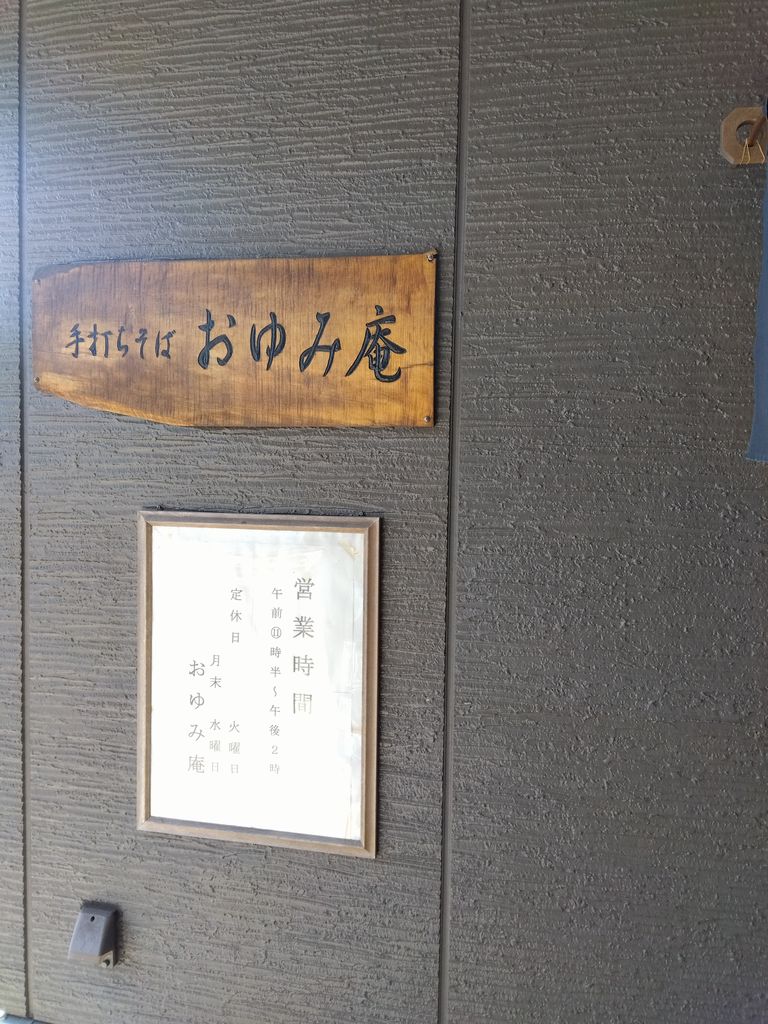 手打ちそば おゆみ庵
営業時間
午前⑪時半～午後2時
定休日 火曜日
月末 水曜日
おゆみ庵